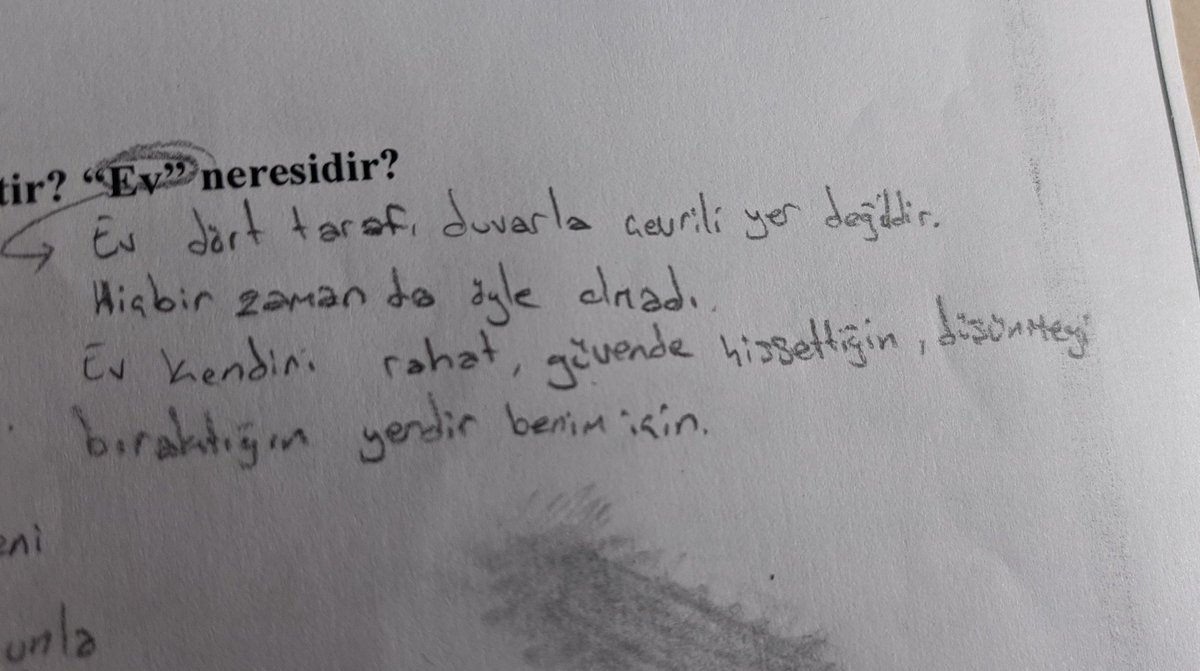 tir? “Ev” neresidir?
Ev dört tarafı duvarla çevrili yer değildir.
Hiçbir zaman da öyle olmadı.
Ev kendini rahat, güvende hissettiğin, düşünmeyi
bıraktığın yerdir benim için.
eni
unla